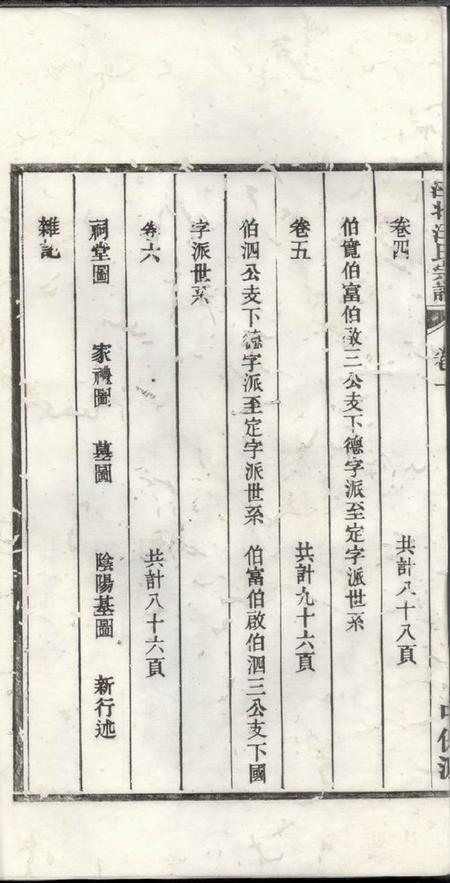 卷四 共計八十八頁
伯寬伯富伯啟三公支下德字派至定字派世系
卷五 共計九十六頁
伯泗公支下德字派至定字派世系 伯富伯啟伯泗三公支下國
字派世系
卷六 共計八十六頁
祠堂圖 家禮圖 墓圖 陰陽基圖 新行述
雜記